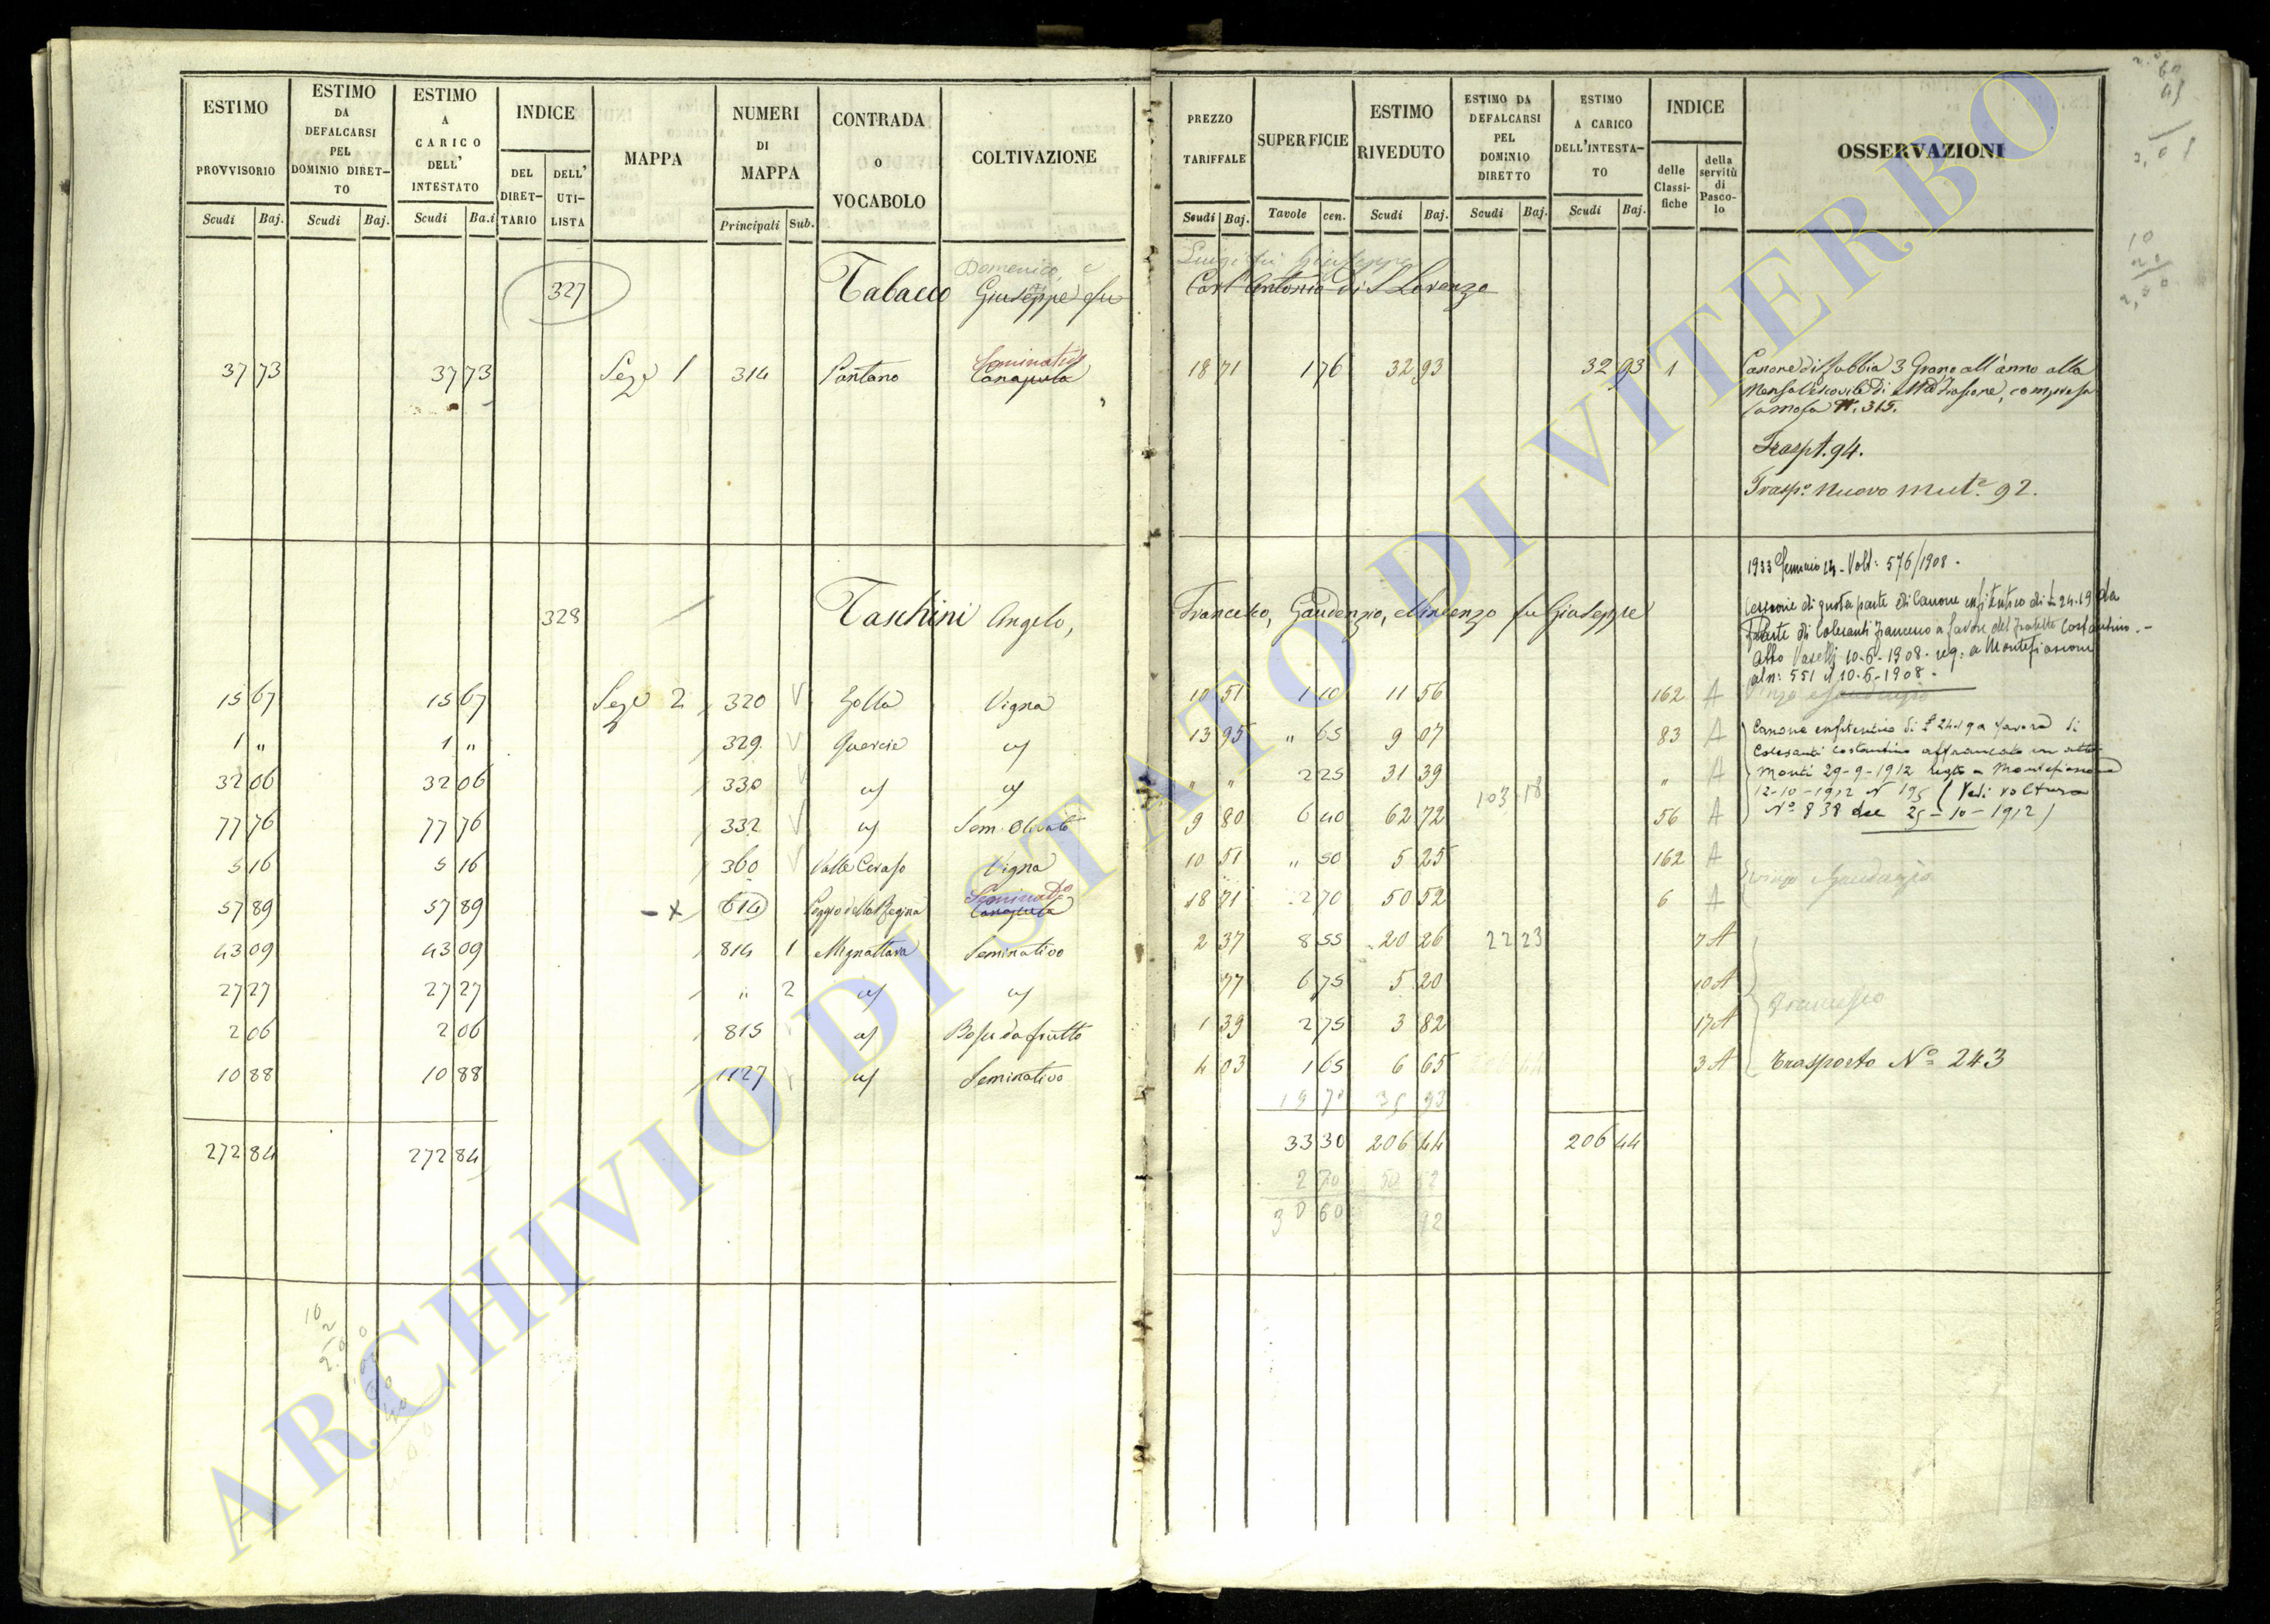 ESTIMO PROVVISORIO
Scudi Baj.
ESTIMO DA DEFALCARSI PEL DOMINIO DIRET-TO
Scudi Baj.
ESTIMO A CARICO DELL' INTESTATO
Scudi Ba.i
INDICE
DEL DIRET-TARIO
DELL' UTI-LISTA
MAPPA
NUMERI DI MAPPA
Principali Sub.
CONTRADA o VOCABOLO
COLTIVAZIONE
PREZZO TARIFFALE
Scudi Baj.
SUPERFICIE
Tavole cen.
ESTIMO RIVEDUTO
Scudi Baj.
ESTIMO DA DEFALCARSI PEL DOMINIO DIRETTO
Scudi Baj.
ESTIMO A CARICO DELL'INTESTA-TO
Scudi Baj.
INDICE
delle Classi-fiche
della servitù di Pasco-lo
OSSERVAZIONI
Domenico, e Luigi fu Giuseppe
327 Tabacco Giuseppe fu Cost'Antonio di S Lorenzo
Seminativo
37 73 37 73 Seze 1 314 Pantano Canapula 18 71 1 76 32 93 32 93 1
Canone di Rubbia 3 Grano all'anno alla
Mensa Vescovile di , compresa
N. 315.
Traspt. 94.
Traspo. Nuovo Mute. 92.
1933 Gennaio 24 - Volt: 576/1908 -
328 Taschini Angelo, Francesco, Gaudenzio, e Vincenzo fu Giuseppe
Cessione di quota parte di Canone enfiteutico di £ 24.19 da
parte di Colesanti Francesco a favore del fratello Costantino. -
Atto Vaselli 10-6-1908 - reg: a Montefiascone
al n: 551 il 10-6-1908 -
15 67 15 67 Seze 2 320 V Zolla Vigna 10 51 1 10 11 56 162 A
1 " 1 " 329 V Quercie 13 95 " 65 9 07 83 A
Canone enfiteutico di £ 24.19 a favore di
Colesanti Costantino affrancato con atto
32 06 32 06 330 V " " 2 25 31 39 " A
Monti 29-9-1912 regto a Montefiascone
103 18
12-10-1912 N 195 (Vedi voltura
77 76 77 76 332 V Sem. Olivato 9 80 6 40 62 72 56 A
No 838 del 25-10-1912)
5 16 5 16 360 V Valle Ceraso Vigna 10 51 " 50 5 25 162 A
Gaudenzio
Seminato
57 89 57 89 - X 614 Poggio della Regina Canapula 18 71 2 70 50 52 6 A
43 09 43 09 814 1 Mignattara Seminativo 2 37 8 55 20 26 22 23 7 A
27 27 27 27 " 2 77 6 75 5 20 10 A
Francesco
2 06 2 06 815 Bosco da frutto 1 39 2 75 3 82 17 A
10 88 10 88 1127 Seminativo 4 03 1 65 6 65 3 A
Trasporto No 243
19 70 35 93
272 84 272 84 33 30 206 44 206 44
2 70 50 52
30 60 92
ARCHIVIO DI STATO DI VITERBO